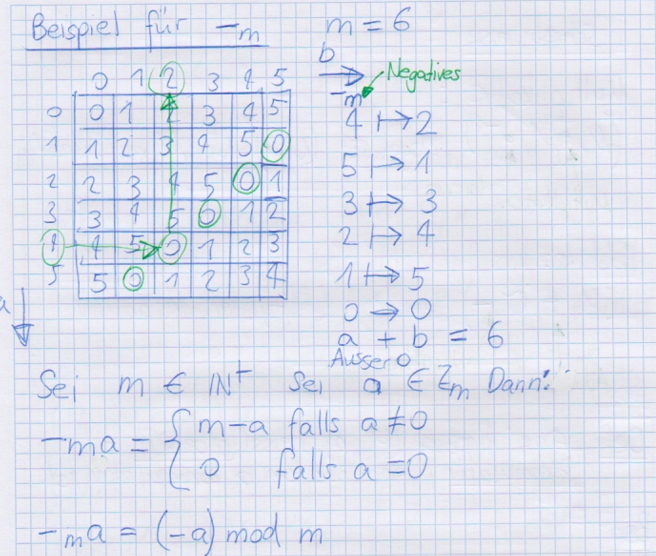 Beispiel für -m m = 6
b
0 1 2 3 4 5
Negatives
-m
0 0 1 2 3 4 5
1 1 2 3 4 5 0
2 2 3 4 5 0 1
3 3 4 5 0 1 2
4 4 5 0 1 2 3
5 5 0 1 2 3 4
a
4 ↦ 2
5 ↦ 1
3 ↦ 3
2 ↦ 4
1 ↦ 5
0 → 0
a + b = 6
Ausser 0
Sei m ∈ ℕ⁺ Sei a ∈ ℤm Dann:
-m a = { m-a falls a ≠ 0
0 falls a = 0
-m a = (-a) mod m